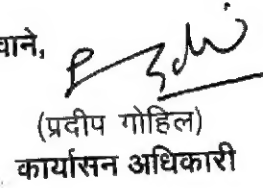 वाने,
(प्रदीप गोहिल)
कार्यासन अधिकारी